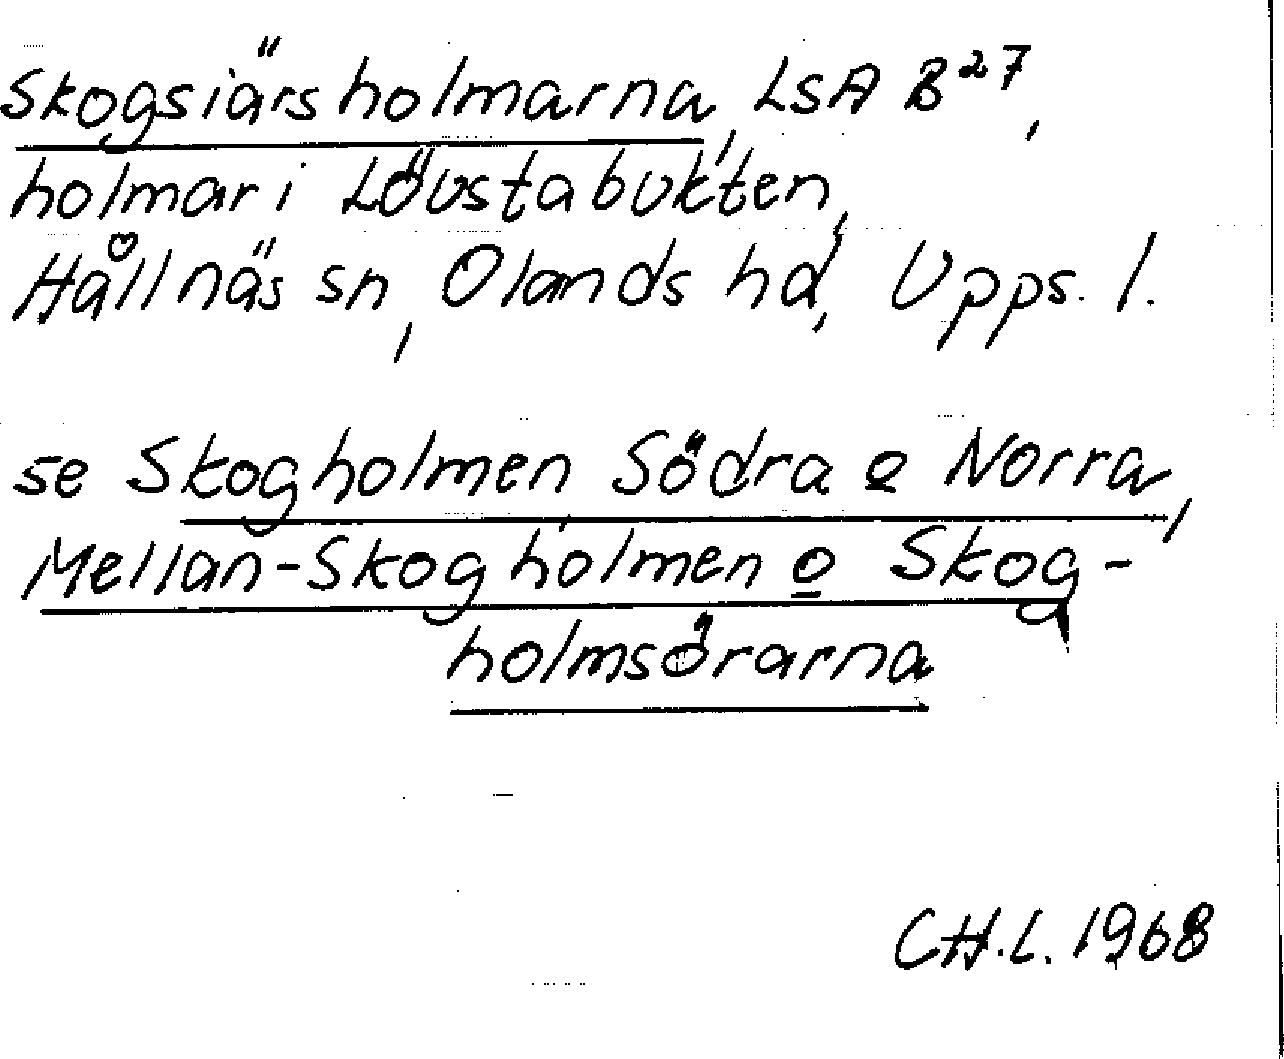 Skogsiärsholmarna, LSA B²⁷,
holmar i Lövstabukten,
Hållnäs sn, Olands hd, Upps. l.
se Skogholmen Södra o Norra,
Mellan-Skogholmen o Skog-
holmsörarna
CH.L. 1968